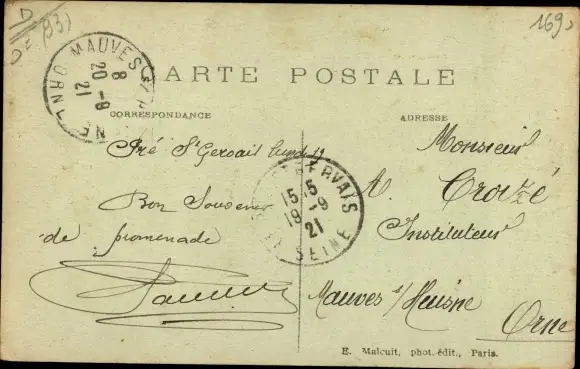 D
D= (93)
169
MAUVES S/HUISNE
8
20 -9
21
ORNE
CARTE POSTALE
CORRESPONDANCE
ADRESSE
Pré St Gervais Lundi 19
Bon Souvenir
de promenade
ST GERVAIS
15 15
19 -9
21
SEINE
Monsieur
A. Croizé
Instituteur
Mauves s/Huisne
Orne
E. Malcuit, phot. édit., Paris.